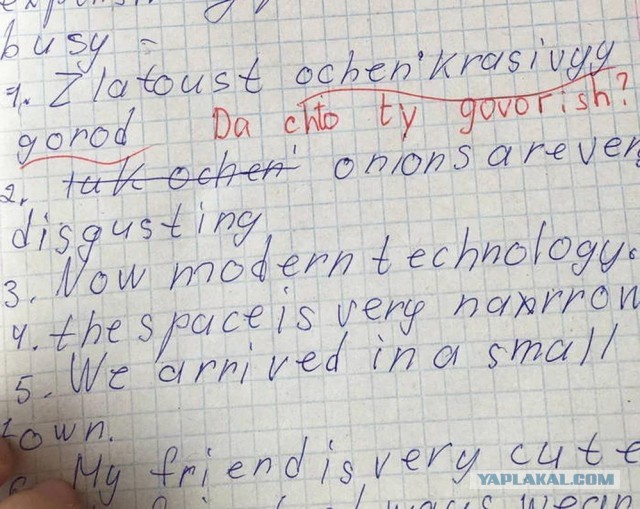 busy -
1. Zlatoust ochen' krasivyy
gorod Da chto ty govorish?
2. tak ochen' onions are ver
disgusting
3. Now modern technology.
4. the space is very narrow
5. We arrived in a small
town.
6. My friend is very cute
YAPLAKAL.COM